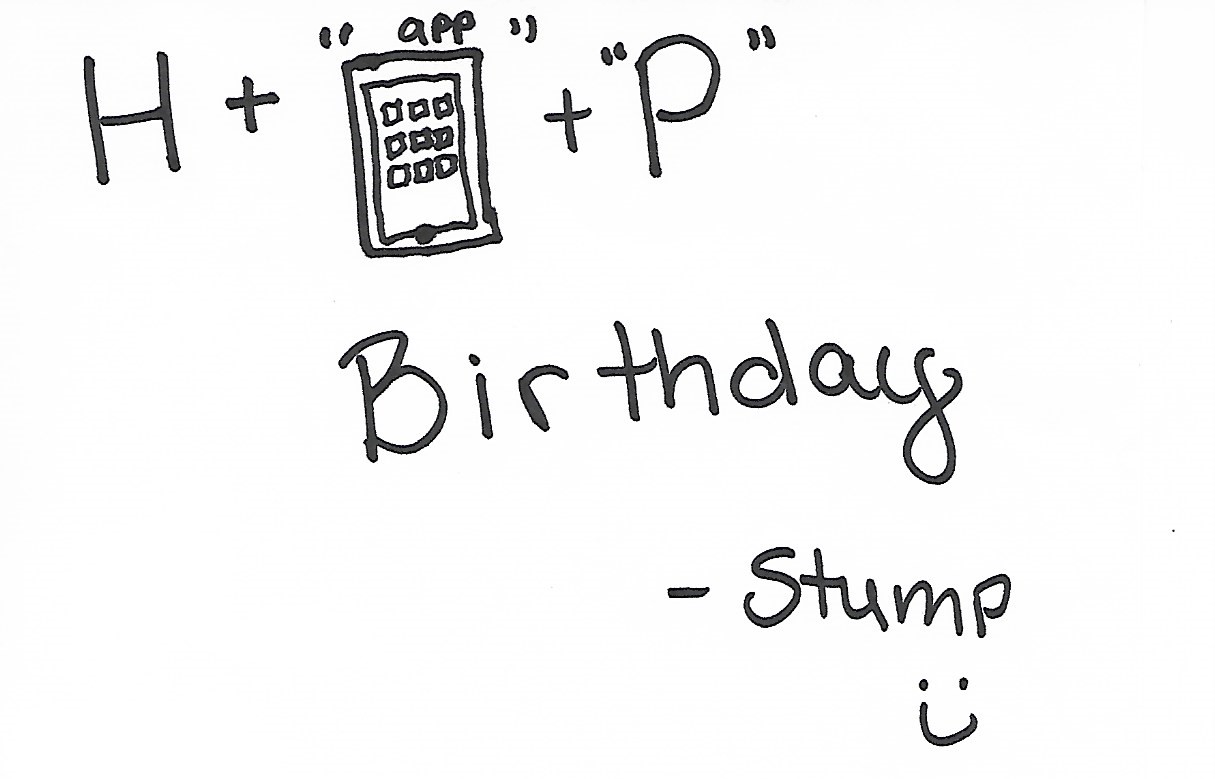 H + "app" + "P"
Birthday
- Stump